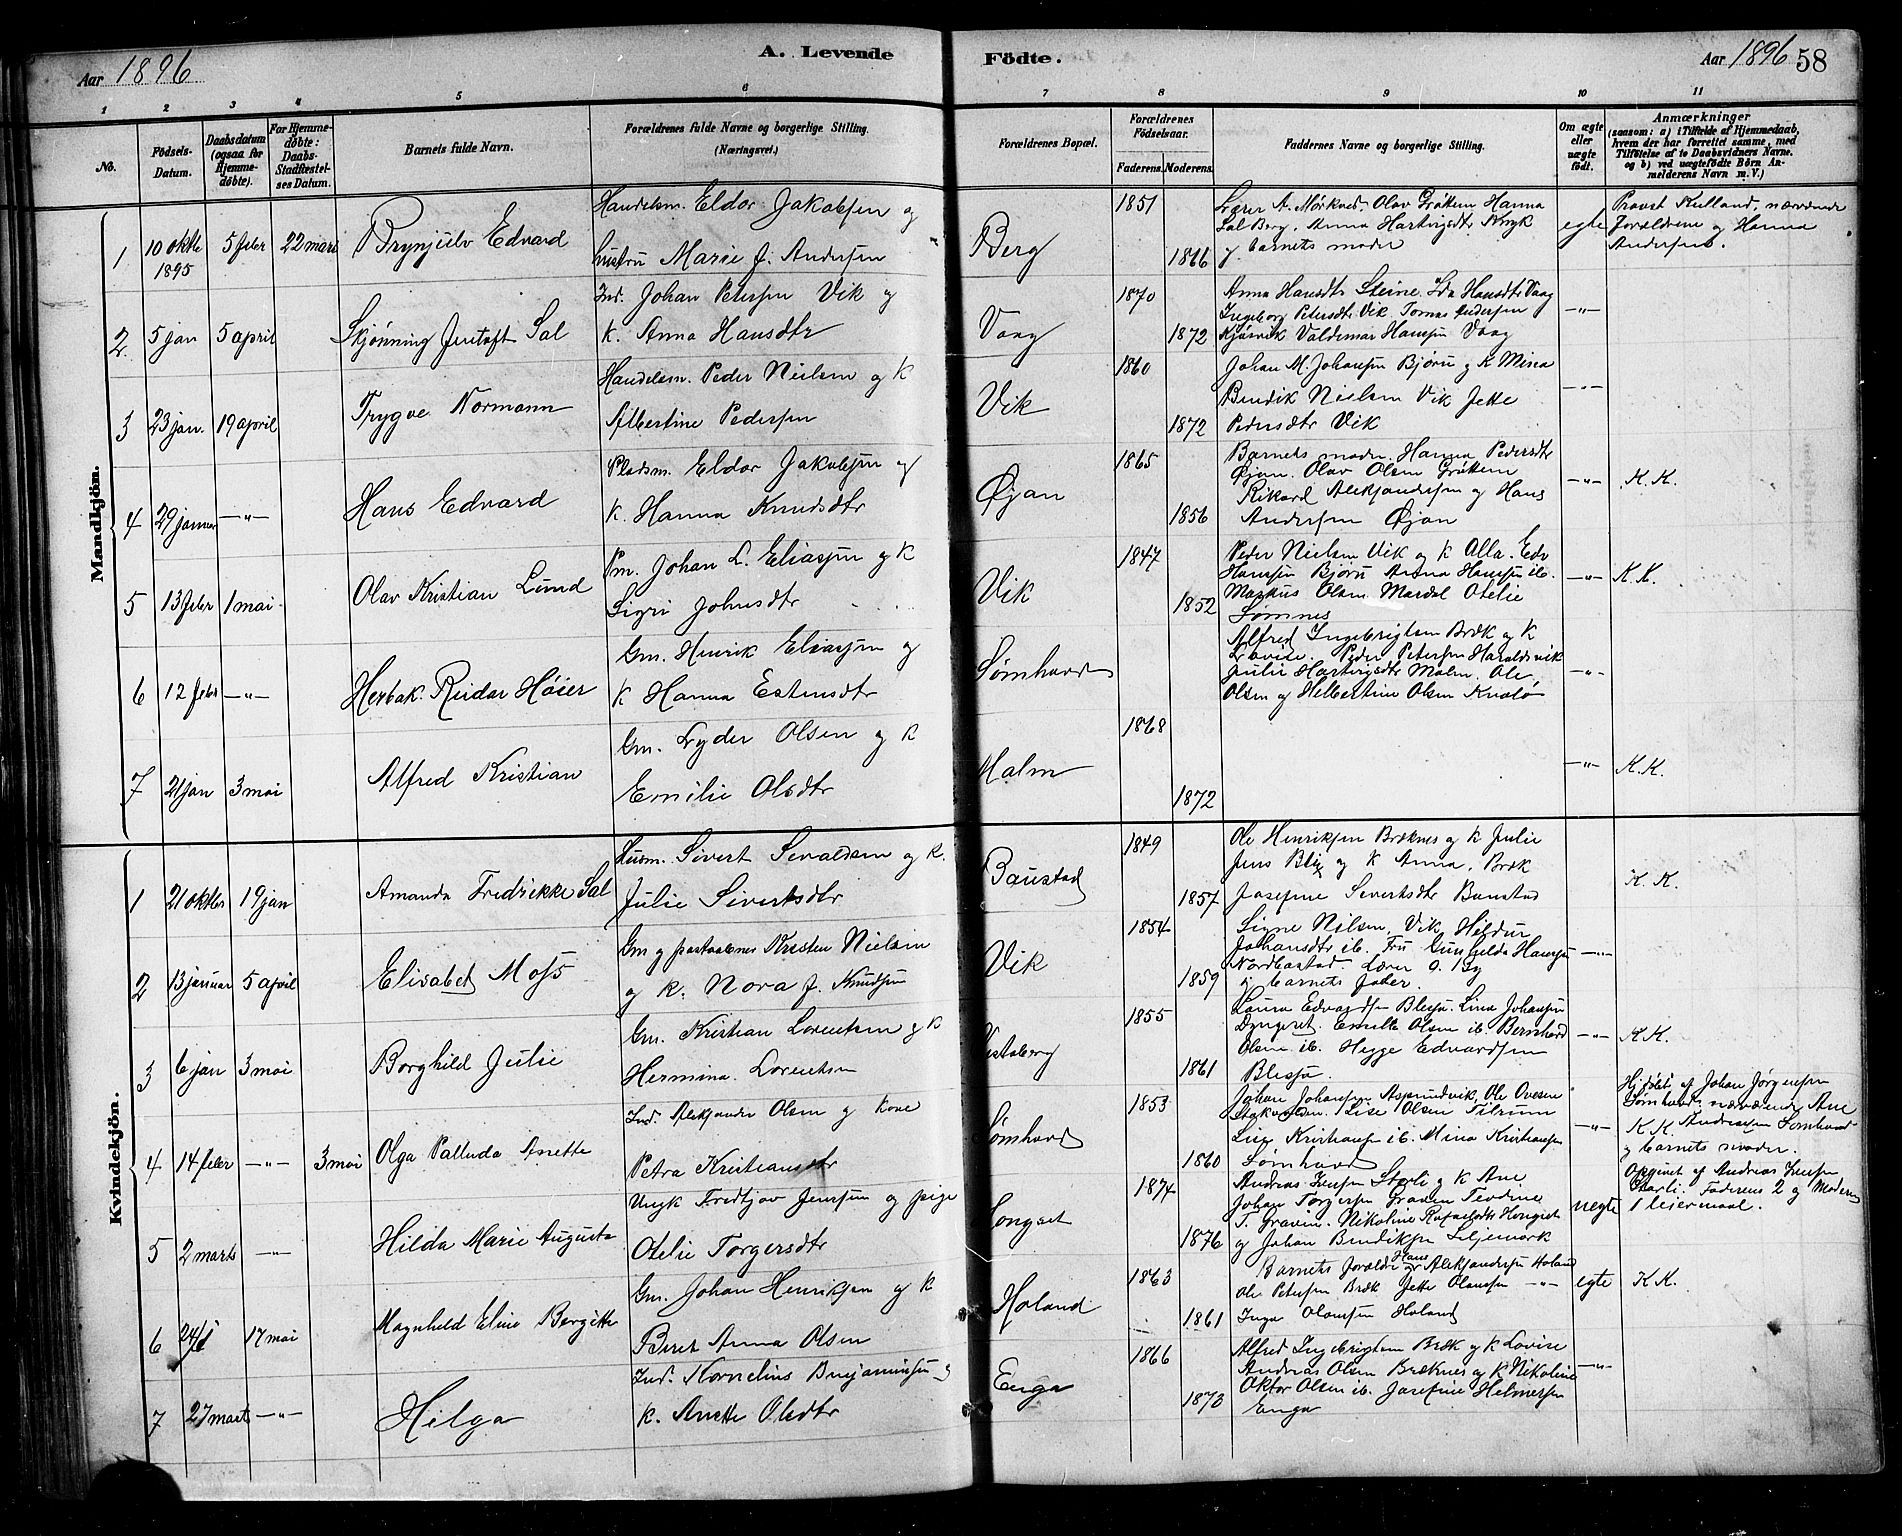 Aar 1896
A. Levende
Födte.
Aar 1896 58
1 2 3 4 5 6 7 8 9 10 11
No.
Födsels-Datum.
Daabsdatum (ogsaa for Hjemmedöbte).
For Hjemmedöbte: Daabs-Stadfæstelses Datum.
Barnets fulde Navn.
Forældrenes fulde Navne og borgerlige Stilling.
(Næringsvei.)
Forældrenes Bopæl.
Forældrenes Födselsaar.
Faderens. Moderens.
Faddernes Navne og borgerlige Stilling.
Om ægte eller uægte födt.
Anmærkninger
(saasom: a) i Tilfælde af Hjemmedaab,
hvem der har forrettet samme, med
Tilföielse af to Daabsvidners Navne.
og b) ved uægtefödte Börn Anmelderens Navn m. V.)
Mandkjön.
1 10 oktb 1895 5 feber 22 mars Brynjulv Edvard
Handelsm. Eldor Jakobsen og
hustru Marie f. Andersen
Berg 1851 1866
Lærer A. Mörkved. Olav Gröttem Hanna
Sal Berg. Anna Hartvigsdtr
g. barnets moder
egte
Provst Kulland, nærværende
Forældrene og Hanna
Andersen.
2 5 jan 5 april Skjønning Jentoft Sal
Ind. Johan Petersen Vik og
k. Anna Hansdtr
Vaag 1870 1872
Anna Hansdtr Steine. Ida Hansdtr Vaag
Ingeborg Petersdtr Vik Tomas Pedersen
Valdemar Hansen Vaag
—"—
3 23 jan. 19 april Trygve Normann
Handelsm. Peder Nielsen og k
Albertine Pedersen
Vik 1860 1872
Johan M. Johansen Bjøru g k Mina
Bendik Nielsen Vik Jette
Pedersdtr Vik
—"—
4 29 januar —"— Hans Edvard
Pladsm. Eldor Jakobsen og
k. Hanna Knudsdtr
Øjan 1865 1856
Barnets moder. Hanna Pedersdtr
Øjan. Olav Olsen Gröttem
Rikard Aleksandersen og Hans
Andersen Øjan
—"— K. K.
5 13 feber 1 mai Olav Kristian Lund
Pm. Johan L. Eliasen og k
Sigri Johnsdtr
Vik 1847 1852
Peder Nielsen Vik og k Alla. Edv
Hansen Bjøru Anna Hansen ib.
Markus Olsen Mardal Otelie
Sømnes
—"— K. K.
6 12 feber —"— Herbak. Reidar Høier
Gm. Henrik Eliasen og
k Hanna Estensdtr
Sømhovd
Alfred Ingebrigtsen Bræk og k
Lovise. Peder Petersen Haraldsvik
Julie Hartvigsdtr Malm. Ole
Olsen og Helbertine Olsen
—"—
7 21 jan 3 mai Alfred Kristian
Gm. Lyder Olsen og k
Emilie Olsdtr
Malm 1868 1872
—"— K. K.
Kvindekjön.
1 21 oktber 19 jan Amanda Fredrikke Sal
Husm. Sivert Sevaldsen og k.
Julie Sivertsdtr
Baustad 1849 1857
Ole Henriksen Bræknes og k Julie
Jens Blix og k Anna. Bræk
Josefine Sivertsdtr Baustad
K. K.
2 13 januar 5 april Elisabet Moss
Gm og postaabner Kristen Nielsen
og k. Nora f. Knudsen
Vik 1854 1859
Signe Nilsen, Vik Hildur
Johansdtr ib. Fru Gunhelda Hansen
Nordbostad. Lærer
g barnets fader.
—"—
3 6 jan 3 mai Borghild Julie
Gm. Kristian Lorentsen og k
Hermina. Lorentsen
1855 1861
Laura Edvardsen Blesja. Lina Johansen
Dyngeset. Emilie Olsen ib. Bernhard
Olsen ib. Hegge Edvardsen
Blesja.
—"— K K.
4 14 feber —"— 3 mai Olga Palluda Anette
Ind. Aleksander Olsen og kone
Petra Kristiansdtr
Sømhovd 1853 1860
Johan Johansen Aspundvik, Ole Ovesen
Lise Olsen Tilrum
Lise Kristiansen ib. Mina Kristiansen
Sømhovd
—"—
Hj.døbt af Johan Jørgensen
Sømhovd. nærværende Ane
K. K. Andreasen Sømhovd
g barnets moder.
5 2 marts —"— Hilda Marie Augusta
Ungk Fredtjov Jensen og pige
Otelie Torgersdtr
Songset 1874 1876
Andreas Jensen Storli g k Ane
Johan Torgersen Graven Tevdine
T. Graven. Nikoline Rafaelsdtr Hongset
g Johan Bendiksen Liljemark
uegte
Opgivet af Andreas Jensen
Storli. Faderens 2 og Moderens
1 leiermaal.
6 24/1 17 mai Magnhild Eline Bergitte
Gm. Johan Henriksen og k
Beret Anna Olsen
Holand 1863 1861
Barnets forældre Hans Aleksandersen Holand
Ole Petersen Bræk Jette Olausen —"—
Inga Olausen Holand
egte K K.
7 27 marts —"— Hilga
Ind. Kornelius Benjaminsen g
k. Anette Olsdtr
Enga 1866 1873
Alfred Ingebrigtsen Bræk og k Lovise
Andreas Olsen Bræknes og k Nikoline
Oktor Olsen ib. Josefine Helmersen
Enga
—"—